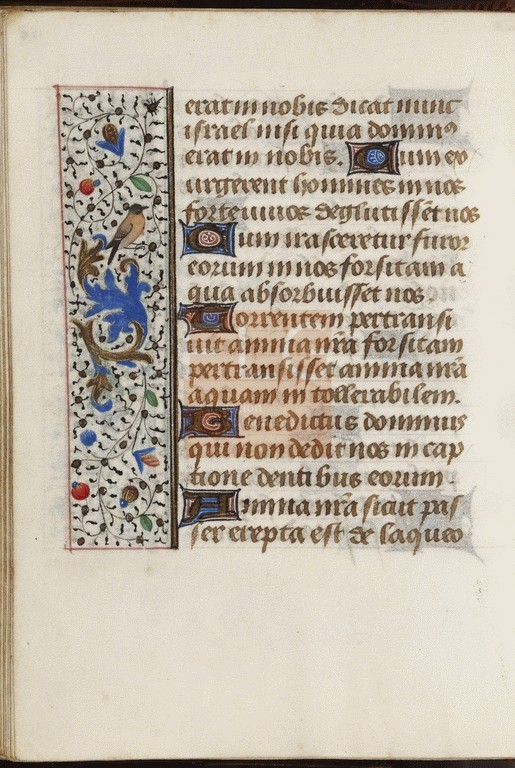 erat in nobis dicat nunc
israel nisi quia dominꝰ
erat in nobis. Cum ex
urgerent homines in nos
forte vivos deglutisset nos
Cum irasceretur furor
eorum in nos forsitam a
qua absorbuisset nos.
Torrentem pertransi
vit anima nr̄a forsitam
pertransisset anima nr̄a
aquam in tollerabilem.
Benedictus dominus
qui non dedit nos in cap
tione dentibus eorum.
Anima nr̄a sicut pas
ser erepta est de laqueo